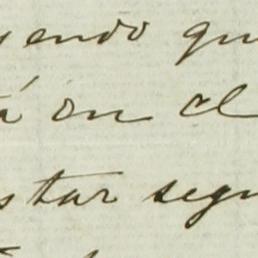 yendo qu
á en el
star segu